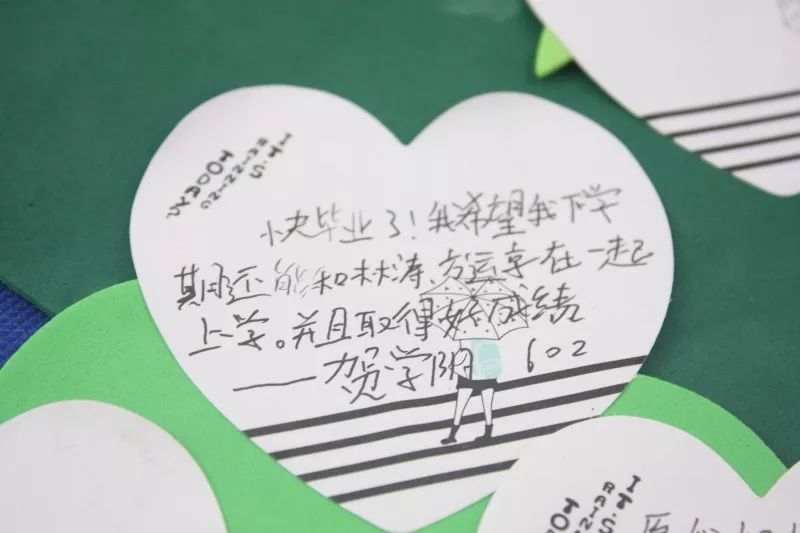 IT'S
RAINING
TODAY
快毕业了!我希望我下学
期还能和林涛、方运亨在一起
上学。并且取得好成绩
——贺学阳 602
IT'S
RAINI
TO